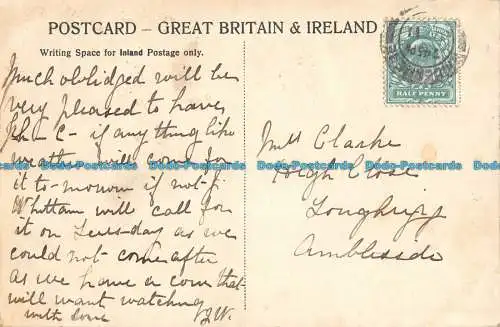 POSTCARD – GREAT BRITAIN & IRELAND
Writing Space for Inland Postage only.
HALF PENNY
Much oblidged will be
very pleased to have
if any thing like
weather will come for
it to-morrow if not J.
Whittam will call for
it on Tues-day as we
could not come after
as we have a cow that
will want watching
with some
J.W.
Clarke
High Close
Loughrigg
Ambleside
Dodo-Postcards Dodo-Postcards Dodo-Postcards Dodo-Postcards Dodo-Postcards